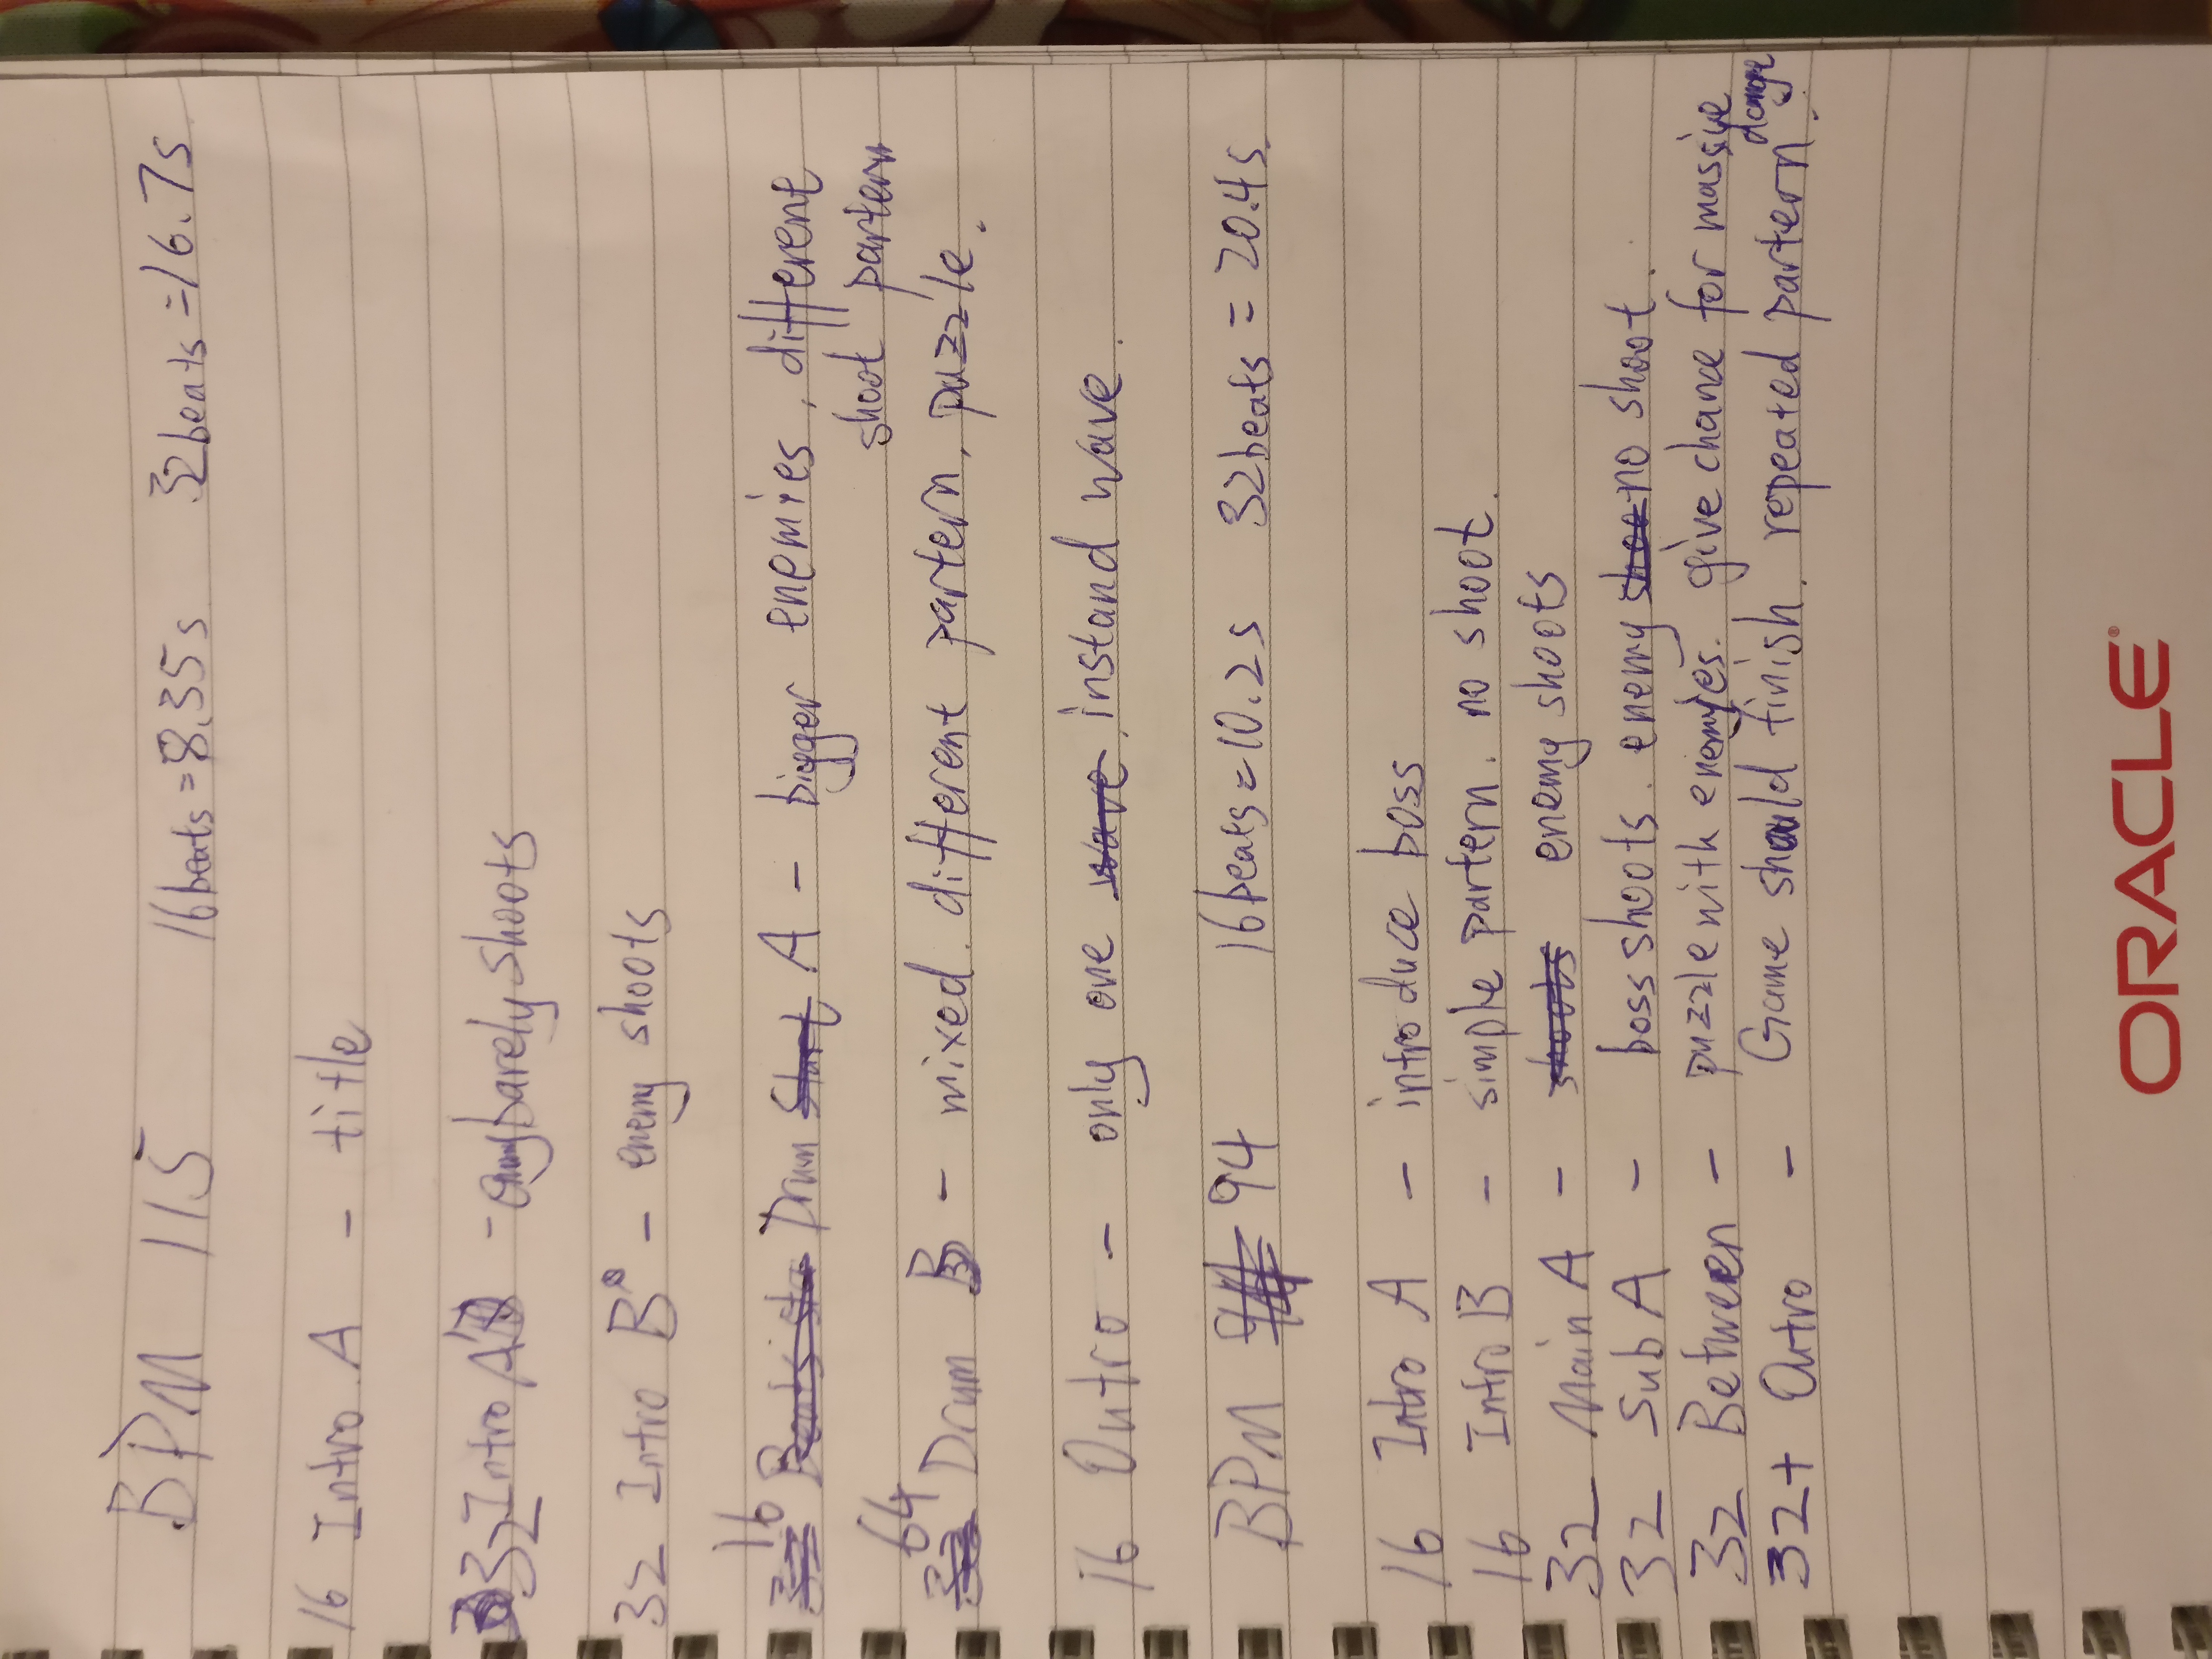 BPM 115 16beats=8.35s 32beats=16.7s
16 Intro A - title
32 Intro A - barely shoots
32 Intro B - enemy shoots
16 Drum A - bigger enemies, different
shoot partern
64 Drum B - mixed. different partern, puzzle.
16 Outro - only one instand wave.
BPM 94 16beats=10.2s 32beats=20.4s.
16 Intro A - introduce boss
16 Intro B - simple partern. no shoot.
32 Main A - enemy shoots
32 Sub A - boss shoots. enemy no shoot.
32 Between - puzzle with enemyes. give chance for massive
damage
32+ Outro - Game should finish. repeated partern.
ORACLE®